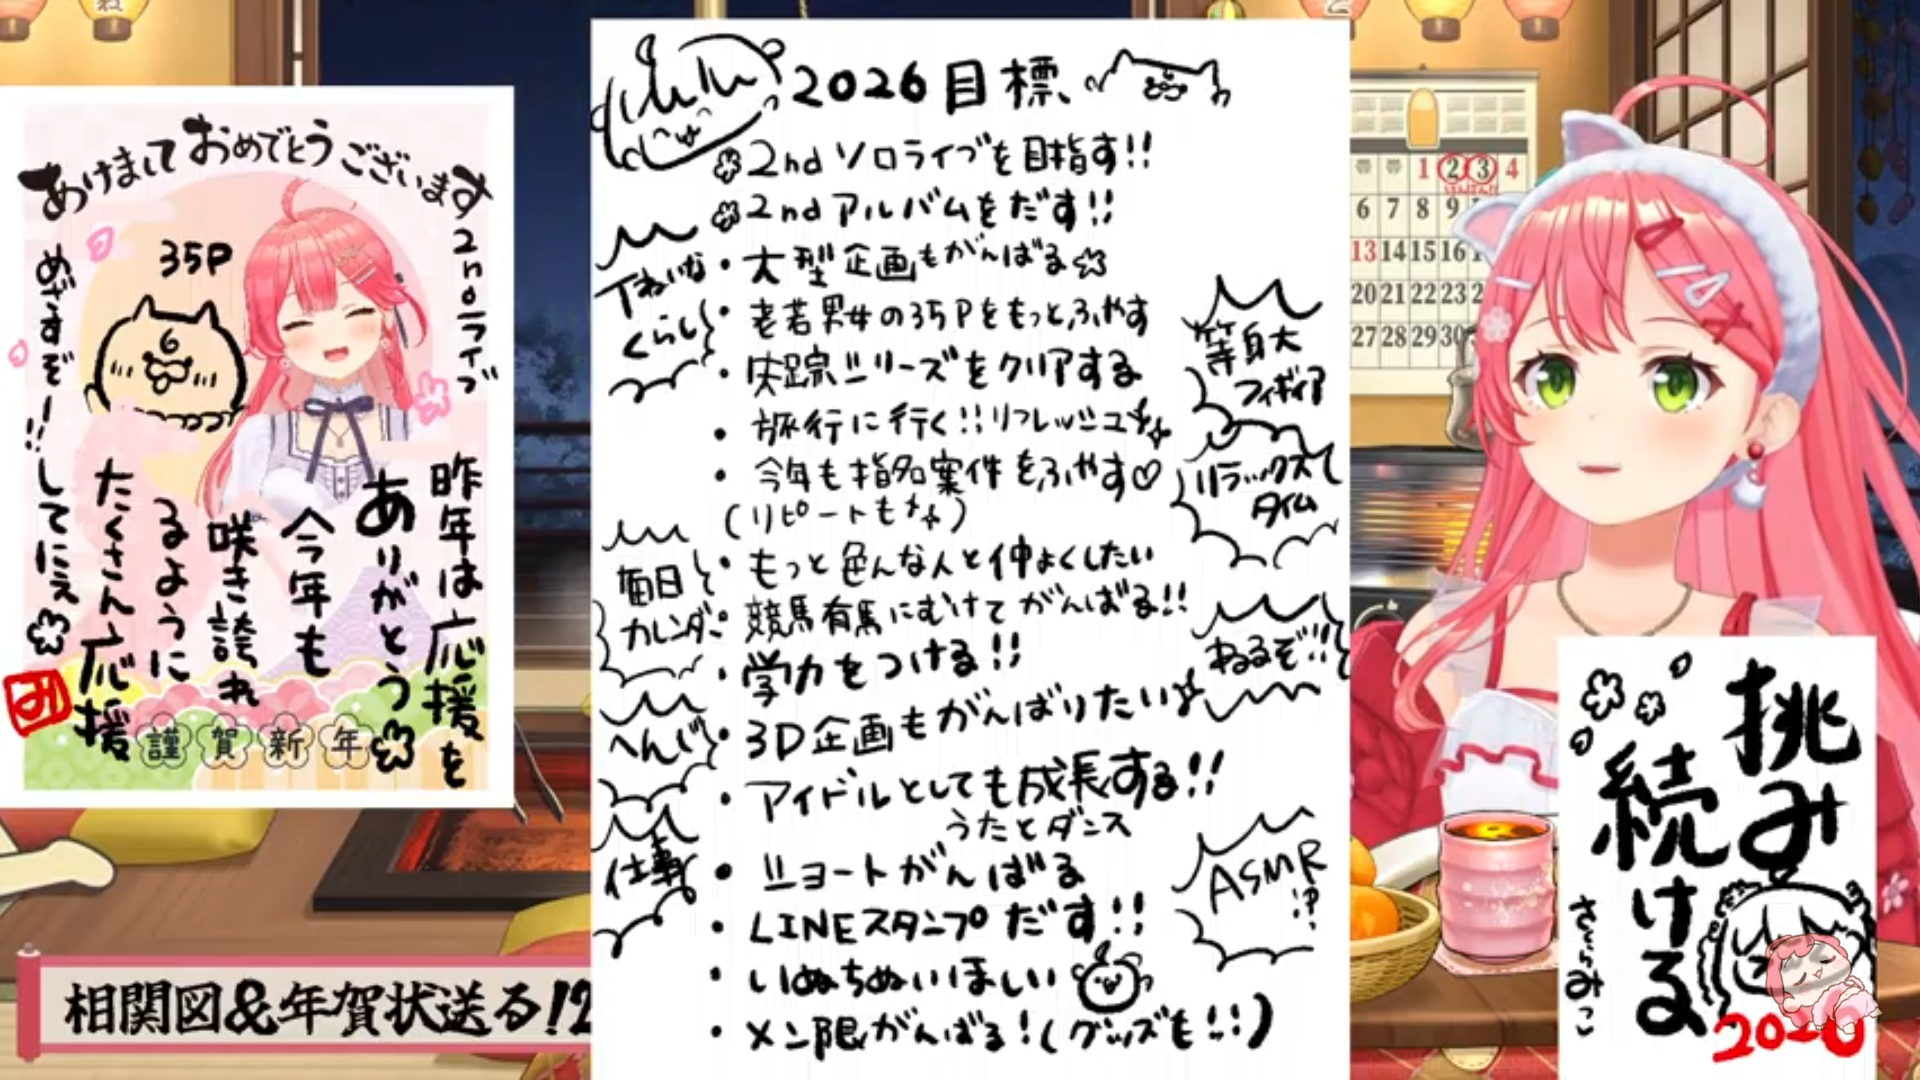 あけましておめでとうございます
2ndライブ
めざすぞー!!
35P
昨年は応援を
ありがとう
今年も
咲き誇れ
るように
たくさん応援
してにぇ
み
謹賀新年
相関図&年賀状送る!2
2026目標
2ndソロライブを目指す!!
2ndアルバムをだす!!
・大型企画もがんばる
・老若男女の35Pをもっとふやす
・失踪シリーズをクリアする
・旅行に行く!!リフレッシュ
・今年も指名案件をふやす♡
(リピートも)
・もっと色んな人と仲よくしたい
・競馬有馬にむけてがんばる!!
・学力をつける!!
・3D企画もがんばりたい
・アイドルとしても成長する!!
うたとダンス
・ショートがんばる
・LINEスタンプだす!!
・いぬちぬいほしい
・メン限がんばる!(グッズも!!)
ていねいな
くらし
毎日
カレンダー
へんじ
仕事
等身大
フィギュア
リラックス
タイム
ねるぞ!!
ASMR
!?
1 2 3 4
6 7 8 9
13 14 15 16
20 21 22 23
27 28 29 30
挑み
続ける
さくらみこ
2026